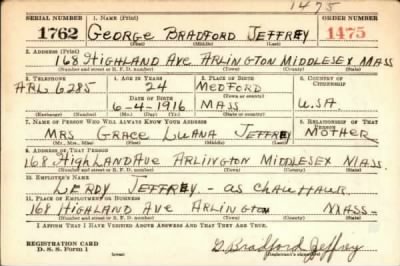 1475
SERIAL NUMBER 1. NAME (Print) ORDER NUMBER
1762 GEORGE BRADFORD JEFFREY 1475
(First) (Middle) (Last)
2. ADDRESS (Print)
168 HIGHLAND AVE ARLINGTON MIDDLESEX MASS
(Number and street or R. F. D. number) (Town) (County) (State)
3. TELEPHONE 4. AGE IN YEARS 5. PLACE OF BIRTH 6. COUNTRY OF CITIZENSHIP
ARL 6285 24 MEDFORD
DATE OF BIRTH (Town or county)
6-4-1916 MASS U.S.A.
(Exchange) (Number) (Mo.) (Day) (Yr.) (State or country)
7. NAME OF PERSON WHO WILL ALWAYS KNOW YOUR ADDRESS 8. RELATIONSHIP OF THAT PERSON
MRS GRACE LUANA JEFFREY MOTHER
(Mr., Mrs., Miss) (First) (Middle) (Last)
9. ADDRESS OF THAT PERSON
168 HIGHLAND AVE ARLINGTON MIDDLESEX MASS.
(Number and street or R. F. D. number) (Town) (County) (State)
10. EMPLOYER'S NAME
LEROY JEFFREY. - AS CHAUFFAUR.
11. PLACE OF EMPLOYMENT OR BUSINESS
168 HIGHLAND AVE ARLINGTON MASS-
(Number and street or R. F. D. number) (Town) (County) (State)
I AFFIRM THAT I HAVE VERIFIED ABOVE ANSWERS AND THAT THEY ARE TRUE.
REGISTRATION CARD
D. S. S. Form 1 G. Bradford Jeffrey
(Registrant's signature)